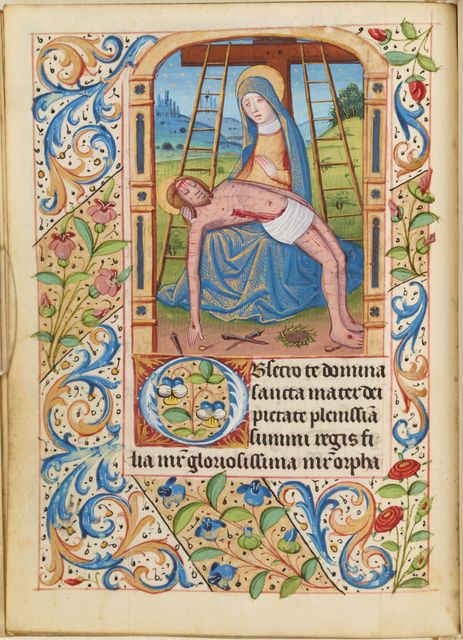 Obsecro te domina
sancta mater dei
pietate plenissiā
summi regis fi-
lia mr̄ gloriosissima mr̄ orpha